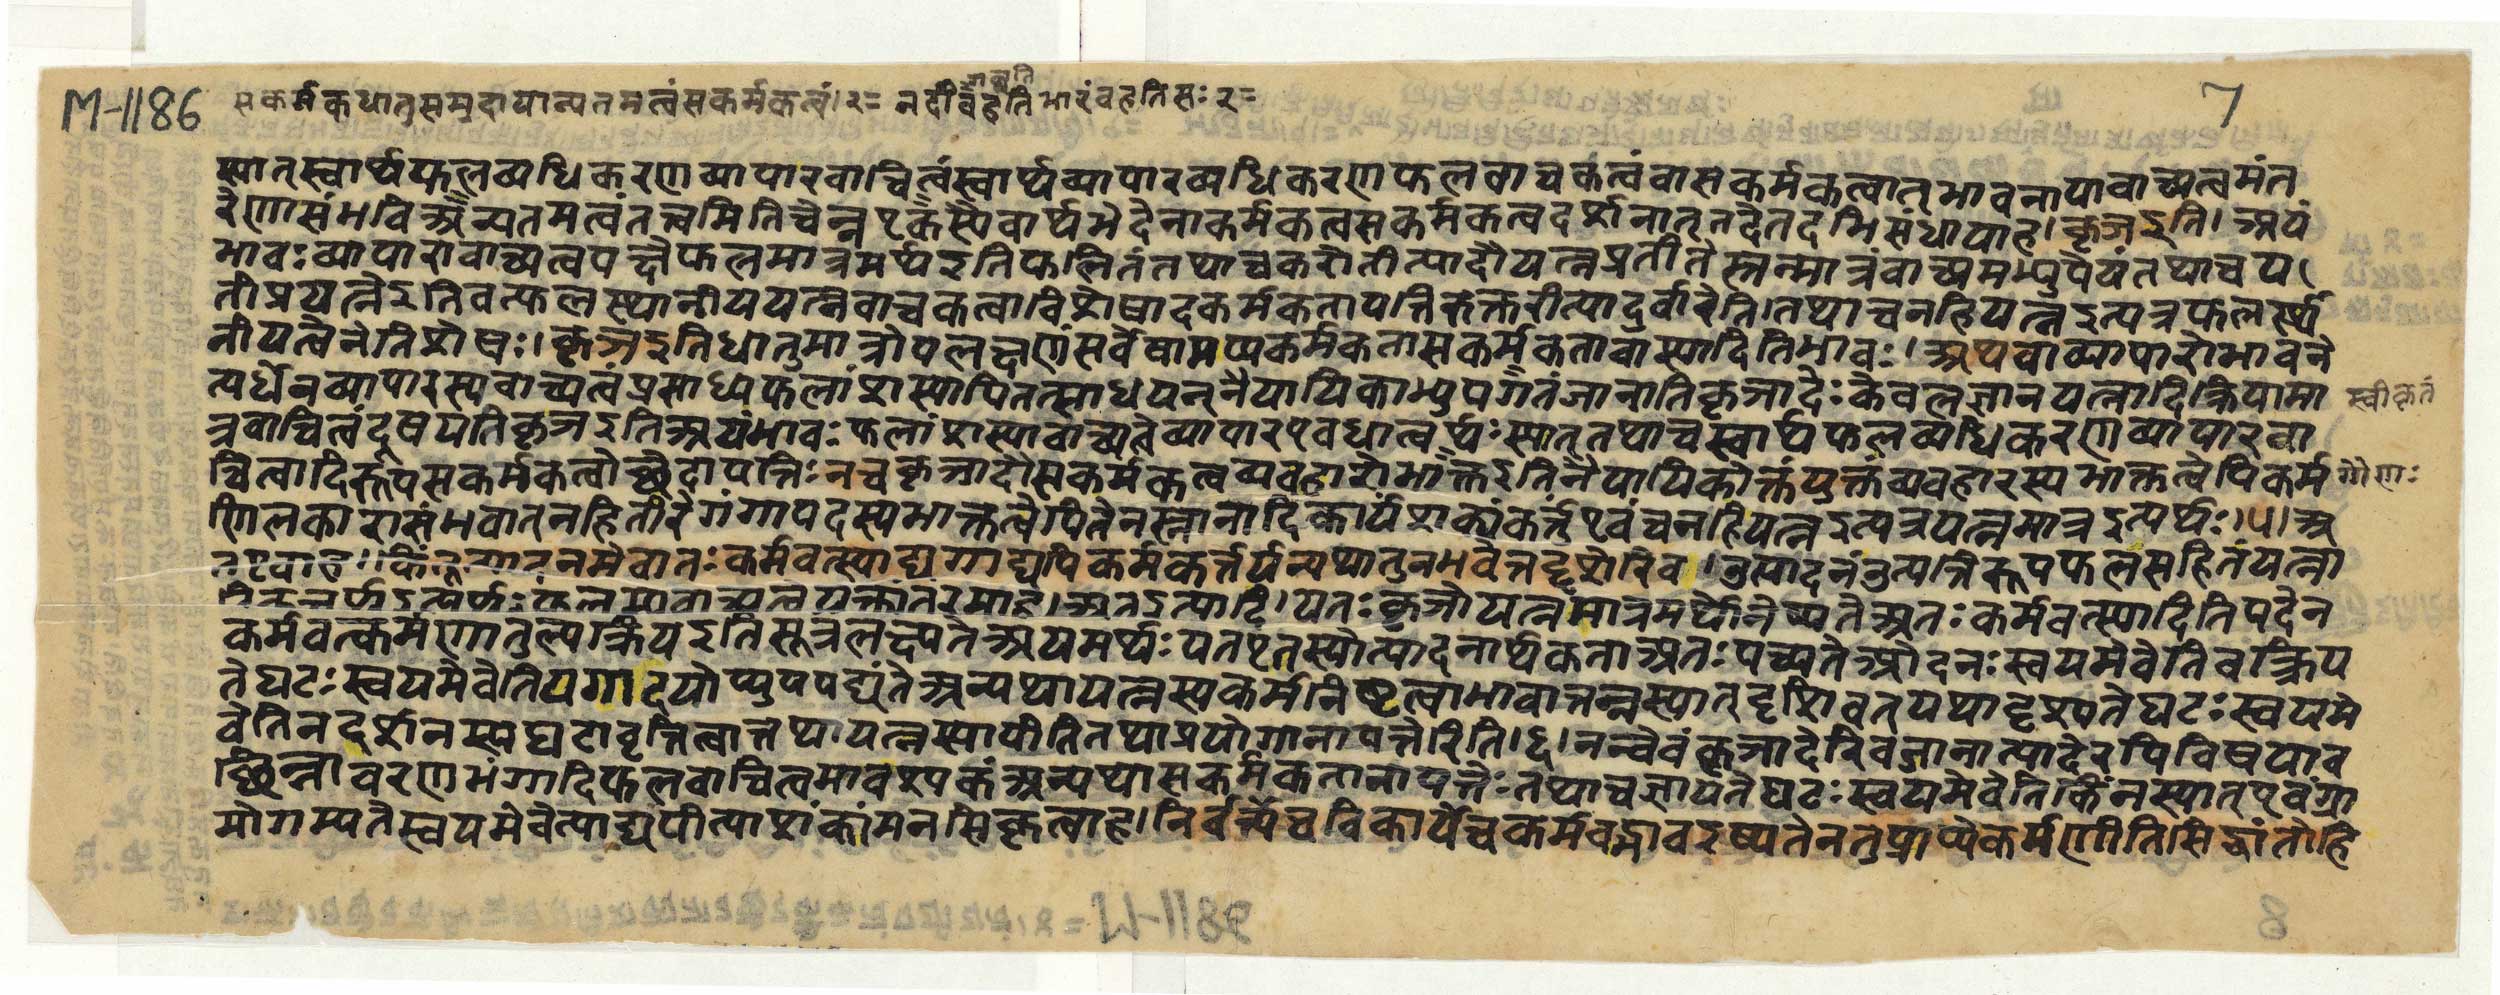 M-1186 सकर्मकधातुसमुदायान्यतमत्वंसकर्मकत्वं।२= नदीवहति भारंवहतिसः२= 7
स्यात्स्वार्थफलव्यधिकरणव्यापारवाचित्वंस्वार्थव्यापारव्यधिकरणफलवाचकत्वंवासकर्मकत्वात्भावनायावाच्यत्वमंत
रेणासंभविअन्यतमत्वंतत्त्वमितिचेन्नएकस्यैवार्थभेदेनाकर्मकत्वसकर्मकत्वदर्शनात्तदेतदभिसंधायाह।कृञइति।अयं
भावःव्यापारावाच्यत्वपक्षेफलमात्रमर्थइतिफलितंतथाचकरोतीत्यादौयत्नप्रतीतेस्तन्मात्रवाच्यमभ्युपेयंतथाचय
तीप्रयत्नेइतिवत्फलस्थानीययत्नवाचकत्वाविशेषादकर्मकतापत्तिरुक्तरीत्यादुर्वारेति।तथाचनहियत्नइत्यत्रफलस्था
नीयत्वेनेतिशेषः।कृञइतिधातुमात्रोपलक्षणंसर्वेषामप्यकर्मकतासकर्मकतावास्यादितिभावः।अथवाव्यापारोभावने
त्यर्धेनव्यापारस्यवाच्यत्वंप्रसाध्यफलांशस्यापितत्साधयन्नैयायिकाभ्युपगतंजानातिकृञादेःकेवलज्ञानयत्नादिक्रियामा स्वीकृतं
त्रवाचित्वंदूषयतिकृञइतिअयंभावःफलांशस्यावाच्यत्वेव्यापारएवधात्वर्थःस्यात्तथाचस्वार्थफलव्यधिकरणव्यापारवा
चित्वादिरूपसकर्मकत्वोच्छेदापत्तिःनचकृञादौसकर्मकत्वव्यवहारोभाक्तइतिनैयायिकोक्तंयुक्तंव्यवहारस्यभाक्तत्वेपिकर्म गौणः
णिलकारासंभवात्नहितीरेगंगापदस्यभाक्तत्वेपितेनस्नानादिकार्यंशक्यंकर्त्तुंएवंचनहियत्नइत्यत्रयत्नमात्रइत्यर्थः।५।अ
तएवाह।किंतूत्पादनमेवातःकर्मवत्स्याद्यगाद्यपिकर्मकर्त्तर्यन्यथातुनभवेत्तद्दृशेरिव।नुत्पादनंनुत्पत्तिरूपफलसहितंयत्ना
दिकृञर्थइत्यर्थःफलस्यावाच्यत्वेयुक्त्यंतरमाह।अतइत्यादि।यतःकृञोयत्नमात्रमर्थोनेष्यतेअतःकर्मवत्स्यादितिपदेन
कर्मवत्कर्मणातुल्यक्रियइतिसूत्रंलक्ष्यतेअयमर्थःयतएतस्योत्पादनार्थकताअतःपच्यतेओदनःस्वयमेवेतिवत्क्रिय
तेघटःस्वयमेवेतियगादयोप्युपपद्यंतेअन्यथायत्नस्यकर्मनिष्ठत्वाभावात्तन्नस्यात्दृशिवत्यथादृश्यतेघटःस्वयमे
वेतिनदर्शनस्यघटावृत्तित्वात्तथायत्नस्यापीतितथाप्रयोगानापत्तेरिति।६।नन्वेवंकृञादेरिवजानात्यादेरपिविषयाव
च्छिन्नावरणभंगादिफलवाचित्वमावश्यकंअन्यथासकर्मकतानापत्तेःतथाचज्ञायतेघटःस्वयमेवेतिकिंनस्यात्एवंग्रा
मोगम्यतेस्वयमेवेत्याद्यपीत्याशंकांमनसिकृत्वाह।निर्वर्त्येचविकार्येचकर्मवद्भावइष्यतेनतुप्राप्येकर्मणीतिसिद्धांतोहि